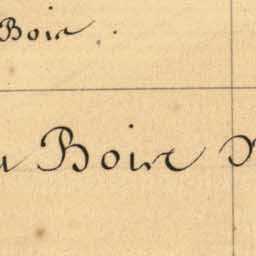 Boir
u Boire